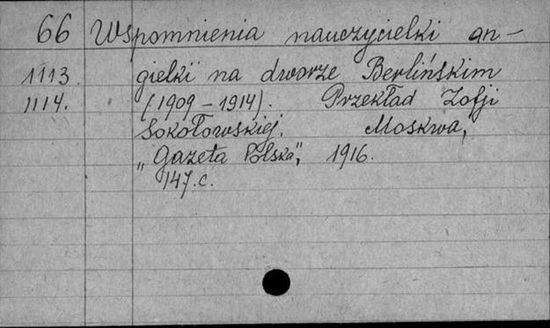 66 Wspomnienia nauczycielki an-
1113. gielki na dworze Berlińskim
1114. (1909 – 1914). Przekład Zofji
Sokołowskiej. Moskwa,
„Gazeta Polska", 1916.
147.c.